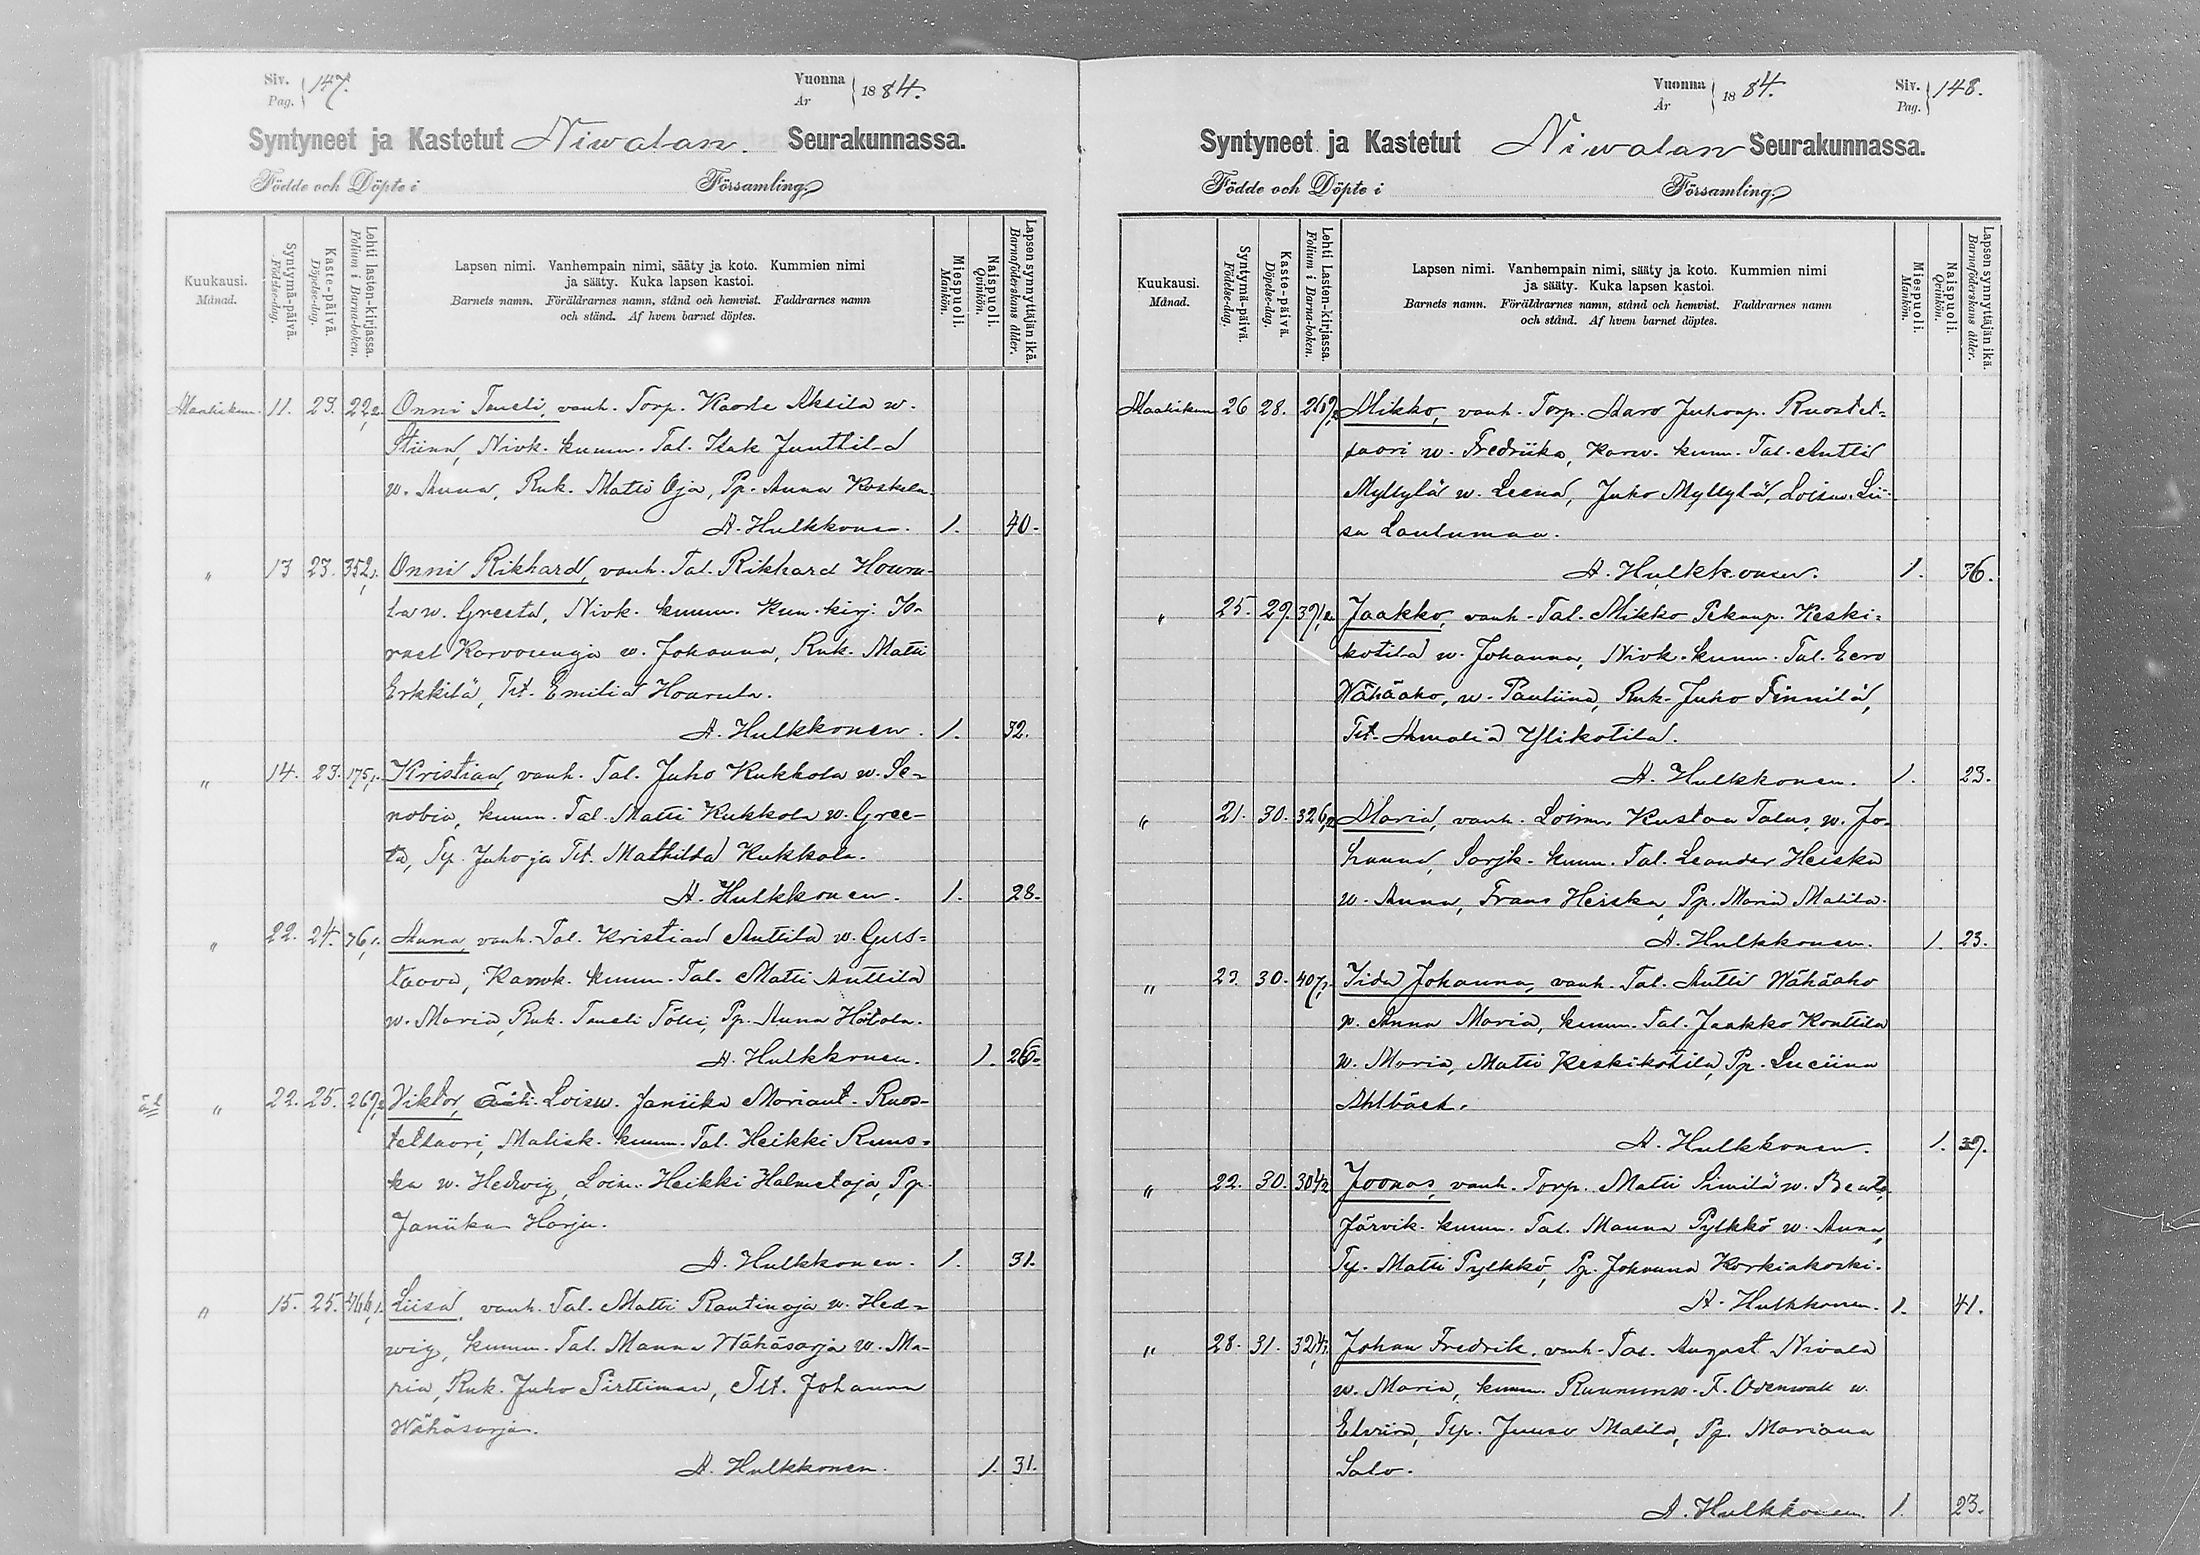 Siv. Pag. 147.
Vuonna År 1884.
Syntyneet ja Kastetut Niwalan Seurakunnassa.
Födde och Döpte i Församling.
Kuukausi. Månad.
Syntymä-päivä. Födelse-dag.
Kaste-päivä. Döpelse-dag.
Lehti lasten-kirjassa. Folium i Barna-boken.
Lapsen nimi. Vanhempain nimi, sääty ja koto. Kummien nimi
ja sääty. Kuka lapsen kastoi.
Barnets namn. Föräldrarnes namn, stånd och hemvist. Faddrarnes namn
och stånd. Af hvem barnet döptes.
Miespuoli. Mankön.
Naispuoli. Qvinkön.
Lapsen synnyttäjän ikä. Barnaföderskans ålder.
Maaliskuu. 11. 23. 22,2. Onni Taneli, vanh. Torp. Kaarle Aksila w.
Stiina, Nivk. kumm. Tal. Isak Junttila
w. Anna, Ruk. Matti Oja, Pp. Anna Koskela.
A. Hulkkonen. 1. 40.
" 13 23. 352,1. Onni Rikhard, vanh. Tal. Rikhard Houru-
la w. Greeta, Nivk. kumm. Kun. kirj.
Karvosenoja w. Johanna, Ruk. Matti
Erkkilä, Tit. Emilia
A. Hulkkonen. 1. 32.
" 14. 23. 175,1. Kristian, vanh. Tal. Juho Kukkola w. Se-
nobia, kumm. Tal. Matti Kukkola w. Gree-
ta, Tp. Juho ja Tit. Mathilda Kukkola.
A. Hulkkonen. 1. 28.
" 22. 24. 76,1. Anna, vanh. Tal. Kristian Anttila w. Gus-
taava, kumm. Tal. Matti Anttila
w. Maria, Ruk. Taneli Pp. Anna
A. Hulkkonen. 1. 26.
ä.l. " 22. 25. 269,2 Viktor, äiti. Loisw. Janiika Mariant. Ruos-
tetsaari, Malisk. kumm. Tal. Heikki Ruus-
ka w. Hedvig, Loism. Heikki Halmetoja, Pp.
Janiika Harju.
A. Hulkkonen. 1. 31.
" 15. 25. Liisa, vanh. Tal. Matti Rautinoja w. Hed-
wig, kumm. Tal. Manna Wähäsarja w. Ma-
ria, Ruk. Juho Pirttimaa, Tit. Johanna
Wähäsarja.
A. Hulkkonen. 1. 31.
Vuonna År 1884.
Siv. Pag. 148.
Syntyneet ja Kastetut Niwalan Seurakunnassa.
Födde och Döpte i Församling.
Kuukausi. Månad.
Syntymä-päivä. Födelse-dag.
Kaste-päivä. Döpelse-dag.
Lehti Lasten-kirjassa. Folium i Barna-boken.
Lapsen nimi. Vanhempain nimi, sääty ja koto. Kummien nimi
ja sääty. Kuka lapsen kastoi.
Barnets namn. Föräldrarnes namn, stånd och hemvist. Faddrarnes namn
och stånd. Af hvem barnet döptes.
Miespuoli. Mankön.
Naispuoli. Qvinkön.
Lapsen synnyttäjän ikä. Barnaföderskans ålder.
Maaliskuu 26 28. 269,2 Mikko, vanh. Torp. Aaro Juhonp. Ruostet-
saari w. Fredriika, Karv. kumm. Tal. Antti
Myllylä w. Leena, Juho Myllylä, Loisw. Lii-
sa Laulumaa.
A. Hulkkonen. 1. 36.
" 25. 29. 391,2 Jaakko, vanh. Tal. Mikko Pekanp. Keski-
kotila w. Johanna, Nivk. kumm. Tal. Eero
Wähäaho, w. Pauliina, Ruk. Juho Finnilä,
Tit. Amalia Ylikotila.
A. Hulkkonen. 1. 23.
" 21. 30. 326,2 Maria, vanh. Loism. Kustaa Talus, w. Jo-
hanna, Sarjk. kumm. Tal. Leander Heiska
w. Anna, Frans Heiska, Pp. Maria Matila.
A. Hulkkonen. 1. 23.
" 23. 30. 407,2 Iida Johanna, vanh. Tal. Antti Wähäaho
w. Anna Maria, kumm. Tal. Jaakko Konttila
w. Maria, Matti Keskikotila, Pp. Luciina
Ahlbäck.
A. Hulkkonen. 1. 39.
" 22. 30. 304,2 Joonas, vanh. Torp. Matti Similä w. Beata,
Järvik. kumm. Tal. Manna Pylkkö w. Anna,
Tp. Matti Pylkkö, Pp. Johanna Korkiakoski.
A. Hulkkonen. 1. 41.
" 28. 31. 324,2. Johan Fredrik, vanh. Tal. August Nivala
w. Maria, kumm. Ruununv. F. Odenwall w.
Elviira, Tp. Juuso Matila, Pp. Mariana
Salo.
A. Hulkkonen. 1. 23.